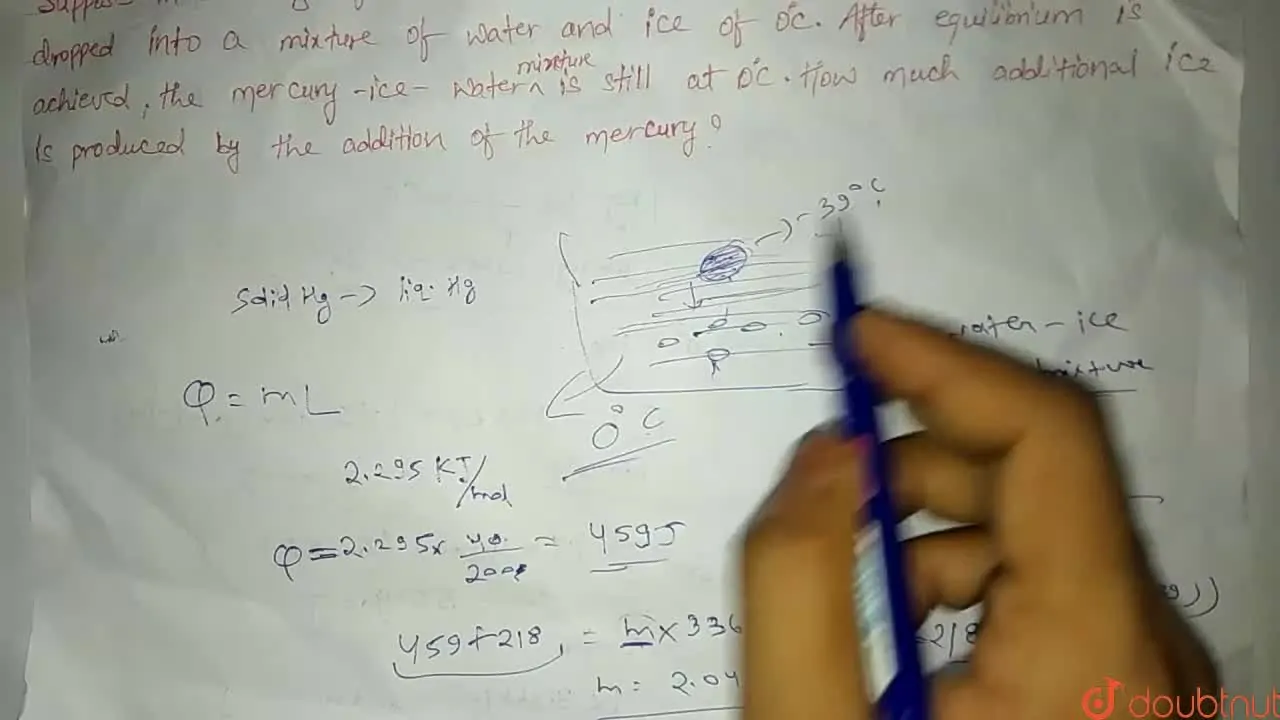 dropped into a mixture of water and ice of 0°c. After equilibrium is
mixture
achieved, the mercury-ice-water^ is still at 0°c. How much additional ice
is produced by the addition of the mercury?
-39°C
Solid Hg → liq. Hg
water-ice
mixture
Q = mL
0°C
2.295 KJ/mol
Q = 2.295 × 40/200 = 459J
459+218 = m×336
218
m = 2.04
doubtnut